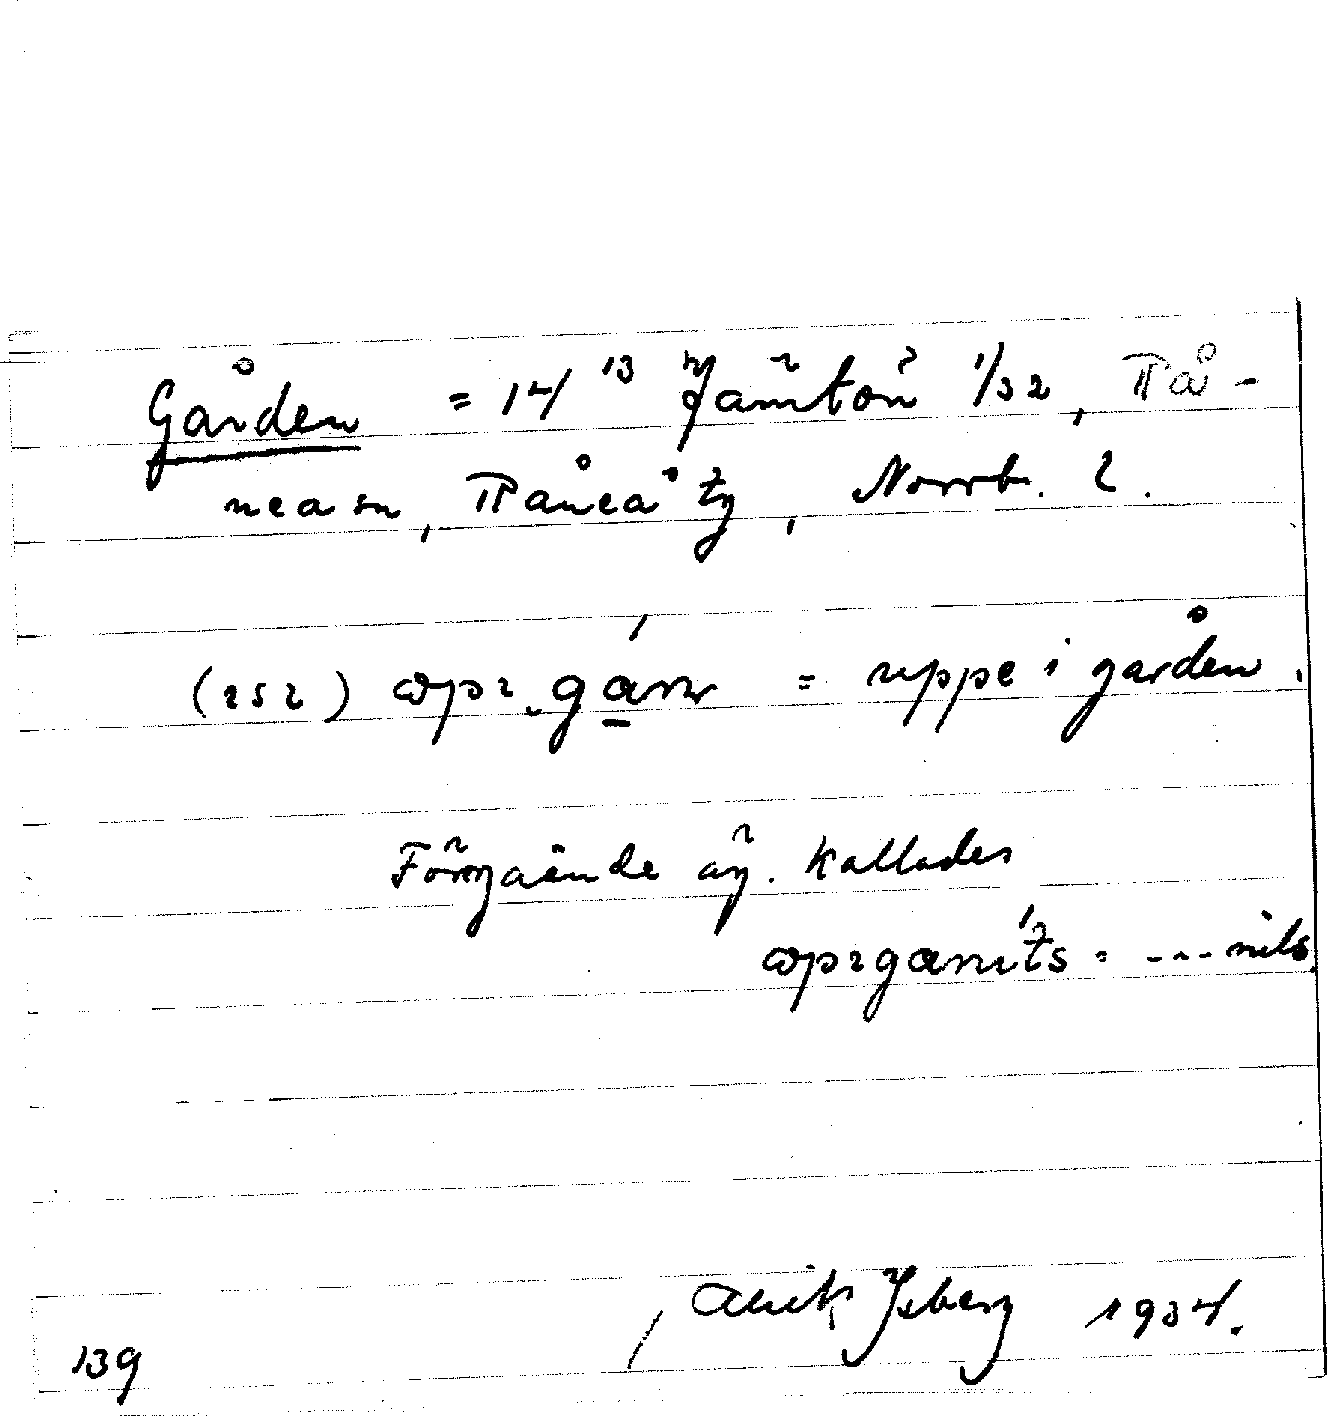 Gården = 14¹³ Jämtön 1/32, Rå-
nea sn, Råneå tg, Norrb. l.
(252) = uppe i gården.
Föregående äg. kallades
= --- nils
Isberg 1934.
139